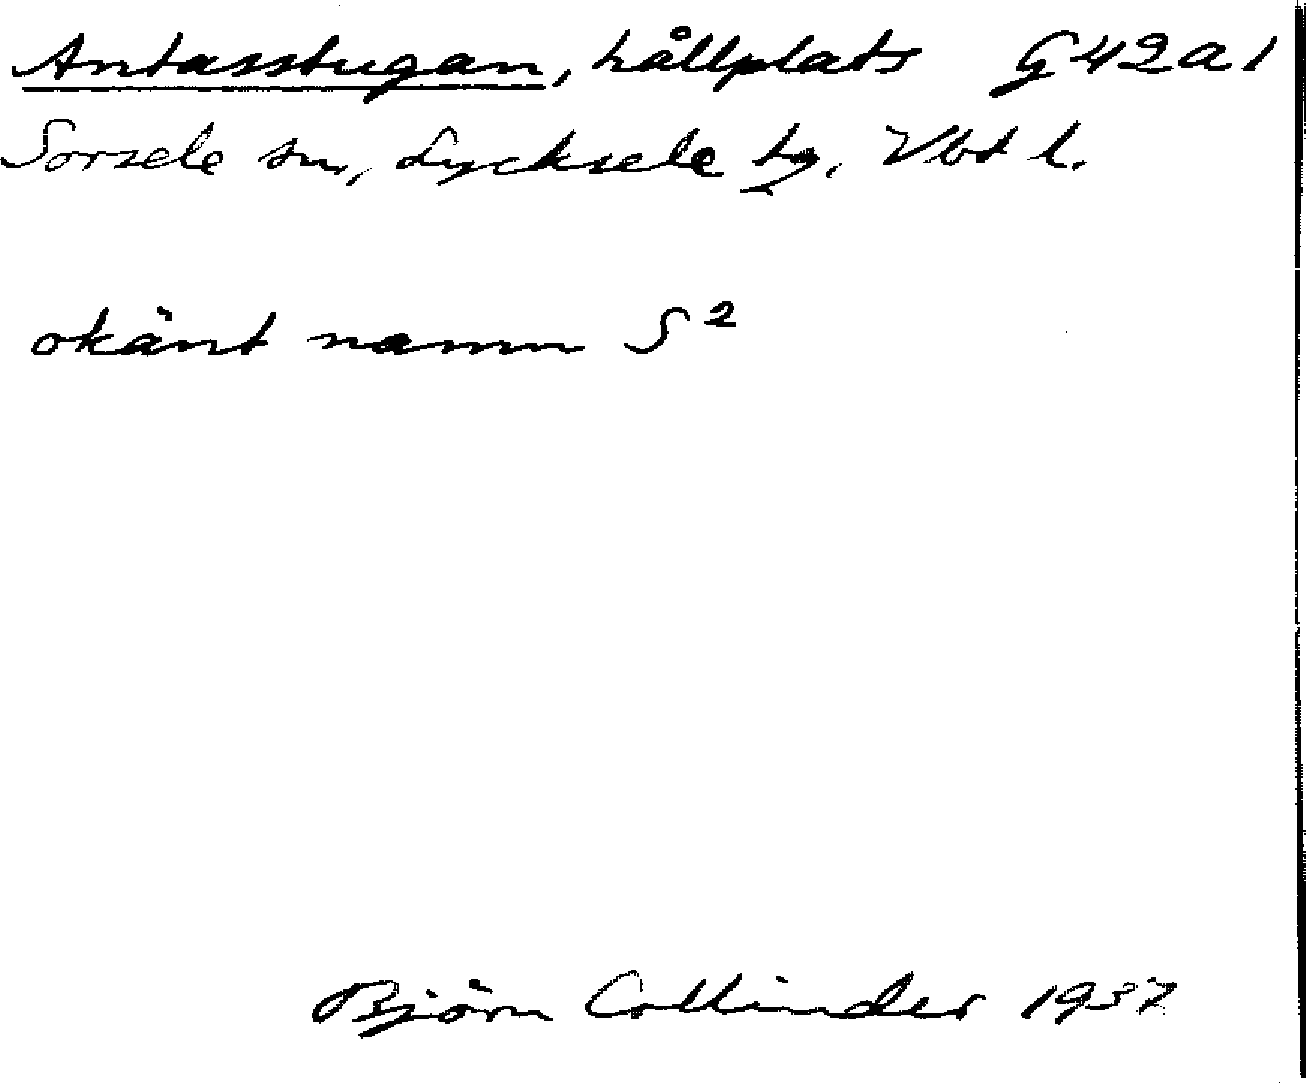 Antasstugan, hållplats G 42 a 1
Sorsele sn, Lycksele tg, Vbt l.
okänt namn S²
Björn Collinder 1937